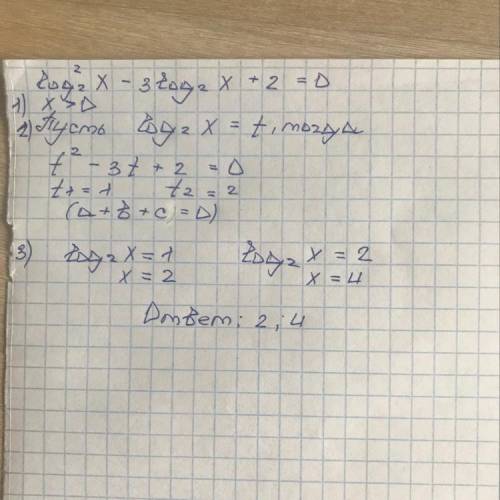 log₂² x - 3 log₂ x + 2 = 0
1) x > 0
2) Пусть log₂ x = t, тогда
t² - 3t + 2 = 0
t₁ = 1 t₂ = 2
(a + b + c = 0)
3) log₂ x = 1 log₂ x = 2
x = 2 x = 4
Ответ: 2; 4